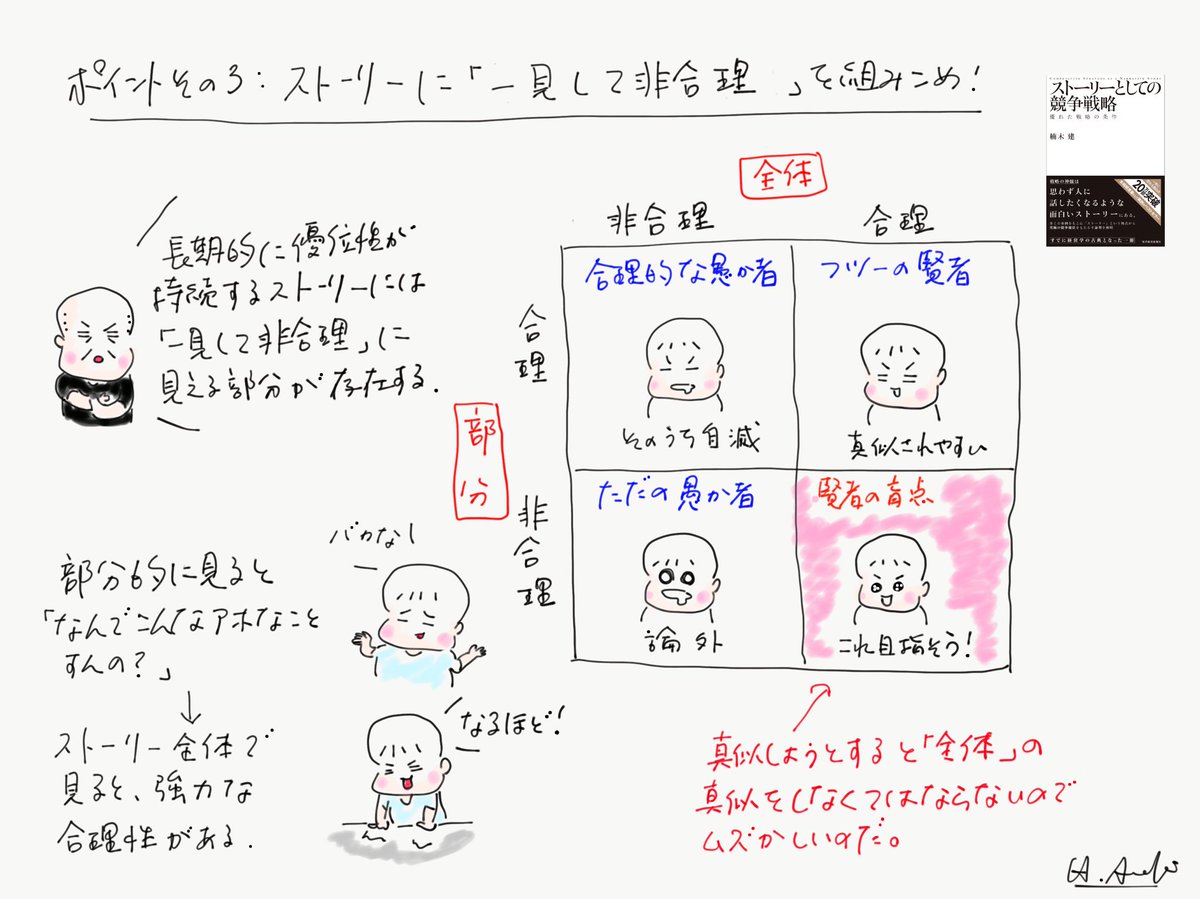 ポイントその3:ストーリーに「一見して非合理」を組みこめ!
ストーリーとしての
競争戦略
優れた戦略の条件
楠木 建
戦略の神髄は
思わず人に
話したくなるような
面白いストーリーにある。
すでに経営学の古典となった一冊
長期的に優位性が
持続するストーリーには
「一見して非合理」に
見える部分が存在する.
全体
非合理
合理
部分
合理
非合理
合理的な愚か者
そのうち自滅
フツーの賢者
真似されやすい
ただの愚か者
論外
賢者の盲点
これ目指そう!
部分的に見ると
「なんでこんなアホなこと
すんの?」
↓
ストーリー全体で
見ると、強力な
合理性がある.
バカなし
なるほど!
真似しようとすると「全体」の
真似をしなくてはならないので
ムズかしいのだ。